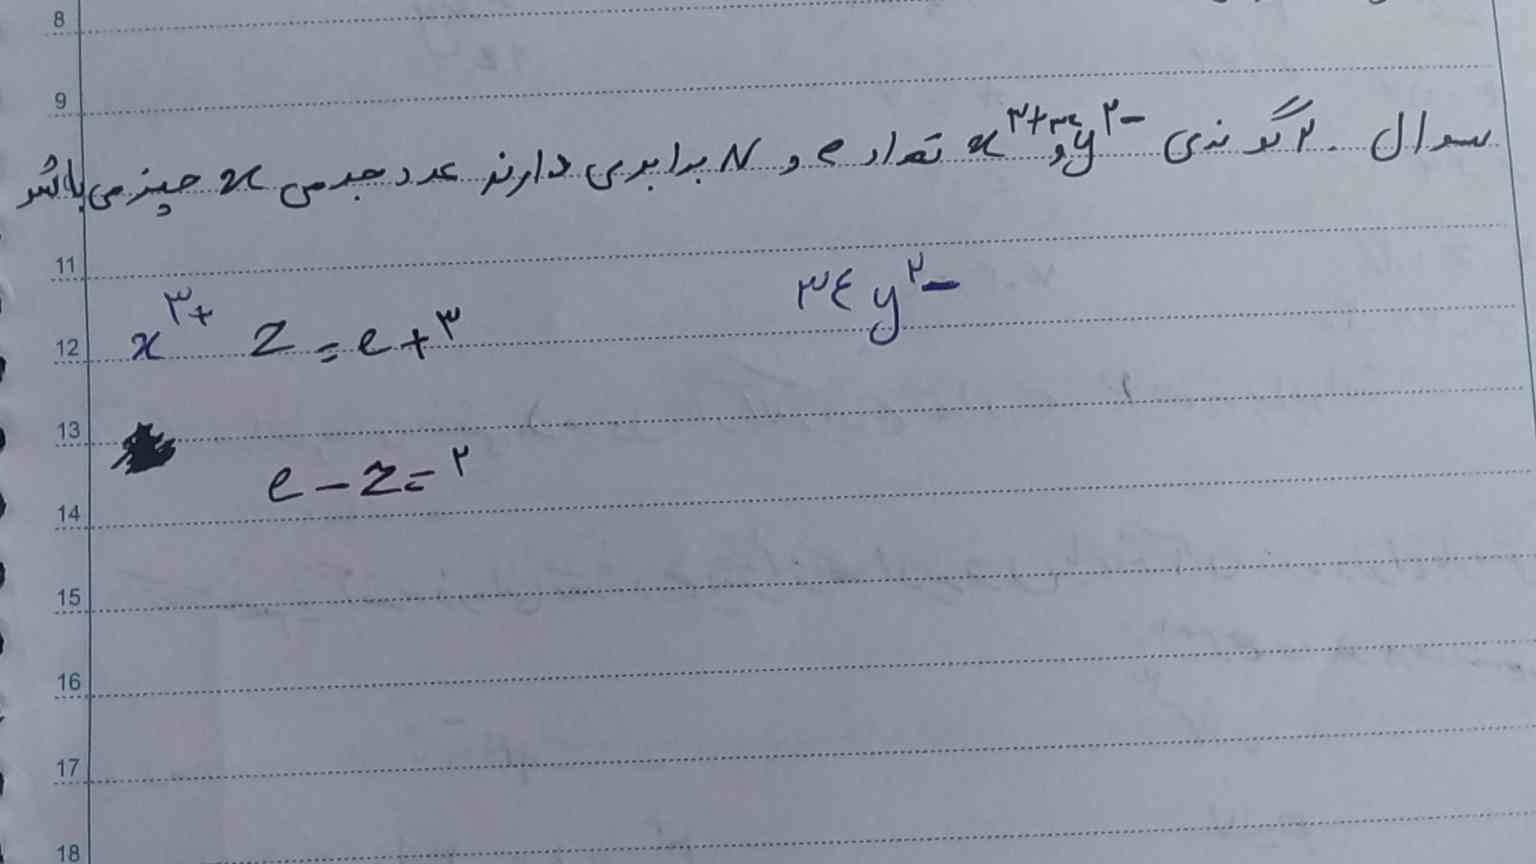 8
9
سوال ۲. گونه‌ی x³⁺ و ³⁴y²⁻ تعداد e و N برابری دارند عدد جرمی x چیز می‌باشد
11
12 x³⁺ Z = e + ۳ ۳۴ y²⁻
13
e - Z = ۲
14
15
16
17
18